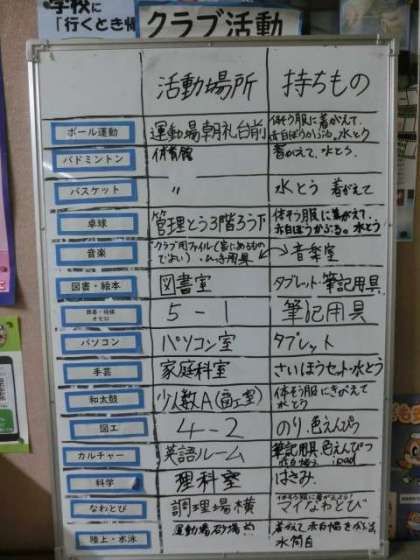 学校に
「行くとき
クラブ活動
活動場所 持ちもの
ボール運動 運動場朝礼台前 体そう服に着がえて、赤白ぼうかぶる。水とう
バドミントン 体育館 着がえて、水とう、
バスケット 〃 水とう 着がえて
卓球 管理とう3階ろう下 体そう服に着がえて、赤白ぼうかぶる。水とう
音楽 クラブ用ファイル(家にあるものでよい)・ひっき用具 音楽室
図書・絵本 図書室 タブレット・筆記用具
オセロ 5-1 筆記用具
パソコン パソコン室 タブレット
手芸 家庭科室 さいほうセット・水とう
和太鼓 少人数A(図工室) 体そう服にきがえて 水とう
図工 4-2 のり、色えんぴつ
カルチャー 英語ルーム 筆記用具、色えんぴつ ipad
科学 理科室 はさみ、
なわとび 調理場横 体そう服に着がえて マイなわとび
陸上・水泳 運動場砂場 着がえて 赤白帽